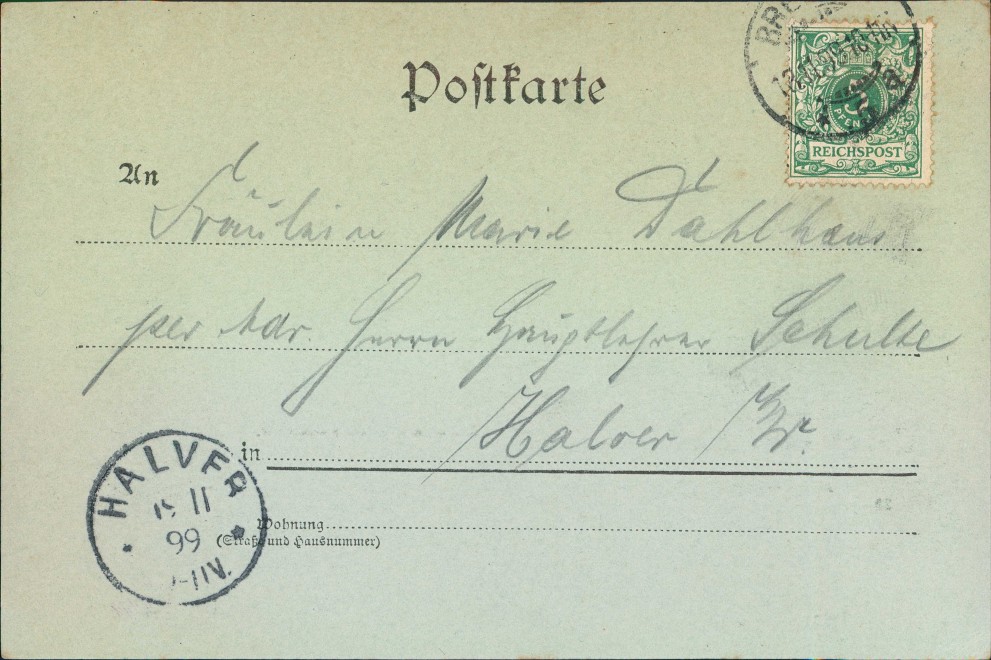 Postkarte
BRE
5
PFENNIG
REICHSPOST
An
Fräulein Marie Dahlhaus
per Adr. Herrn Hauptlehrer Schulte
in Halver i/W.
HALVER
11
99
Wohnung
(Straße und Hausnummer)